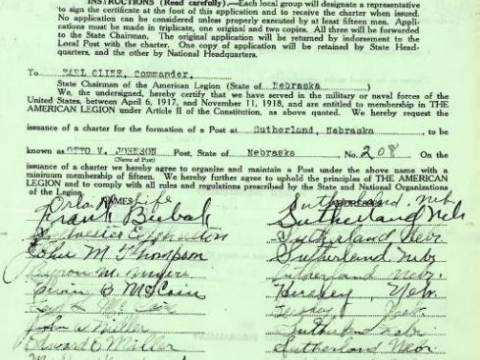 INSTRUCTIONS (Read carefully).—Each local group will designate a representative
to sign the certificate at the foot of this application and to receive the charter when issued.
No application can be considered unless properly executed by at least fifteen men. Appli-
cations must be made in triplicate, one original and two copies. All three will be forwarded
to the State Chairman. The original application will be returned by indorsement to the
Local Post with the charter. One copy of application will be retained by State Head-
quarters, and the other by National Headquarters.
To EARL CLINE, Commander,
State Chairman of the American Legion (State of Nebraska )
We, the undersigned, hereby certify that we have served in the military or naval forces of the
United States, between April 6, 1917, and November 11, 1918, and are entitled to membership in THE
AMERICAN LEGION under Article II of the Constitution, as above quoted. We hereby request the
issuance of a charter for the formation of a Post at Sutherland, Nebraska, to be
known as OTTO V. JOHNSON Post, State of Nebraska No. 208 On the
(Name of Post)
issuance of such charter we hereby agree to organize and maintain a Post under the above name with a
minimum membership of fifteen. We hereby further agree to uphold the principles of THE AMERICAN
LEGION and to comply with all rules and regulations prescribed by the State and National Organizations
of the Legion.
NAMES
Sutherland, Neb
Frank Sutherland Neb
Johnston Sutherland Nebr
John M Thompson Sutherland Neb
M. Sutherland Nebr.
B. McCain Hershey, Neb.
John W Miller Sutherland Nebr
Edward C Miller Sutherland Nebr